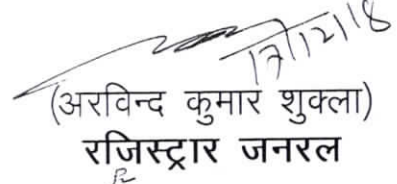 17/12/18
(अरविन्द कुमार शुक्ला)
रजिस्ट्रार जनरल